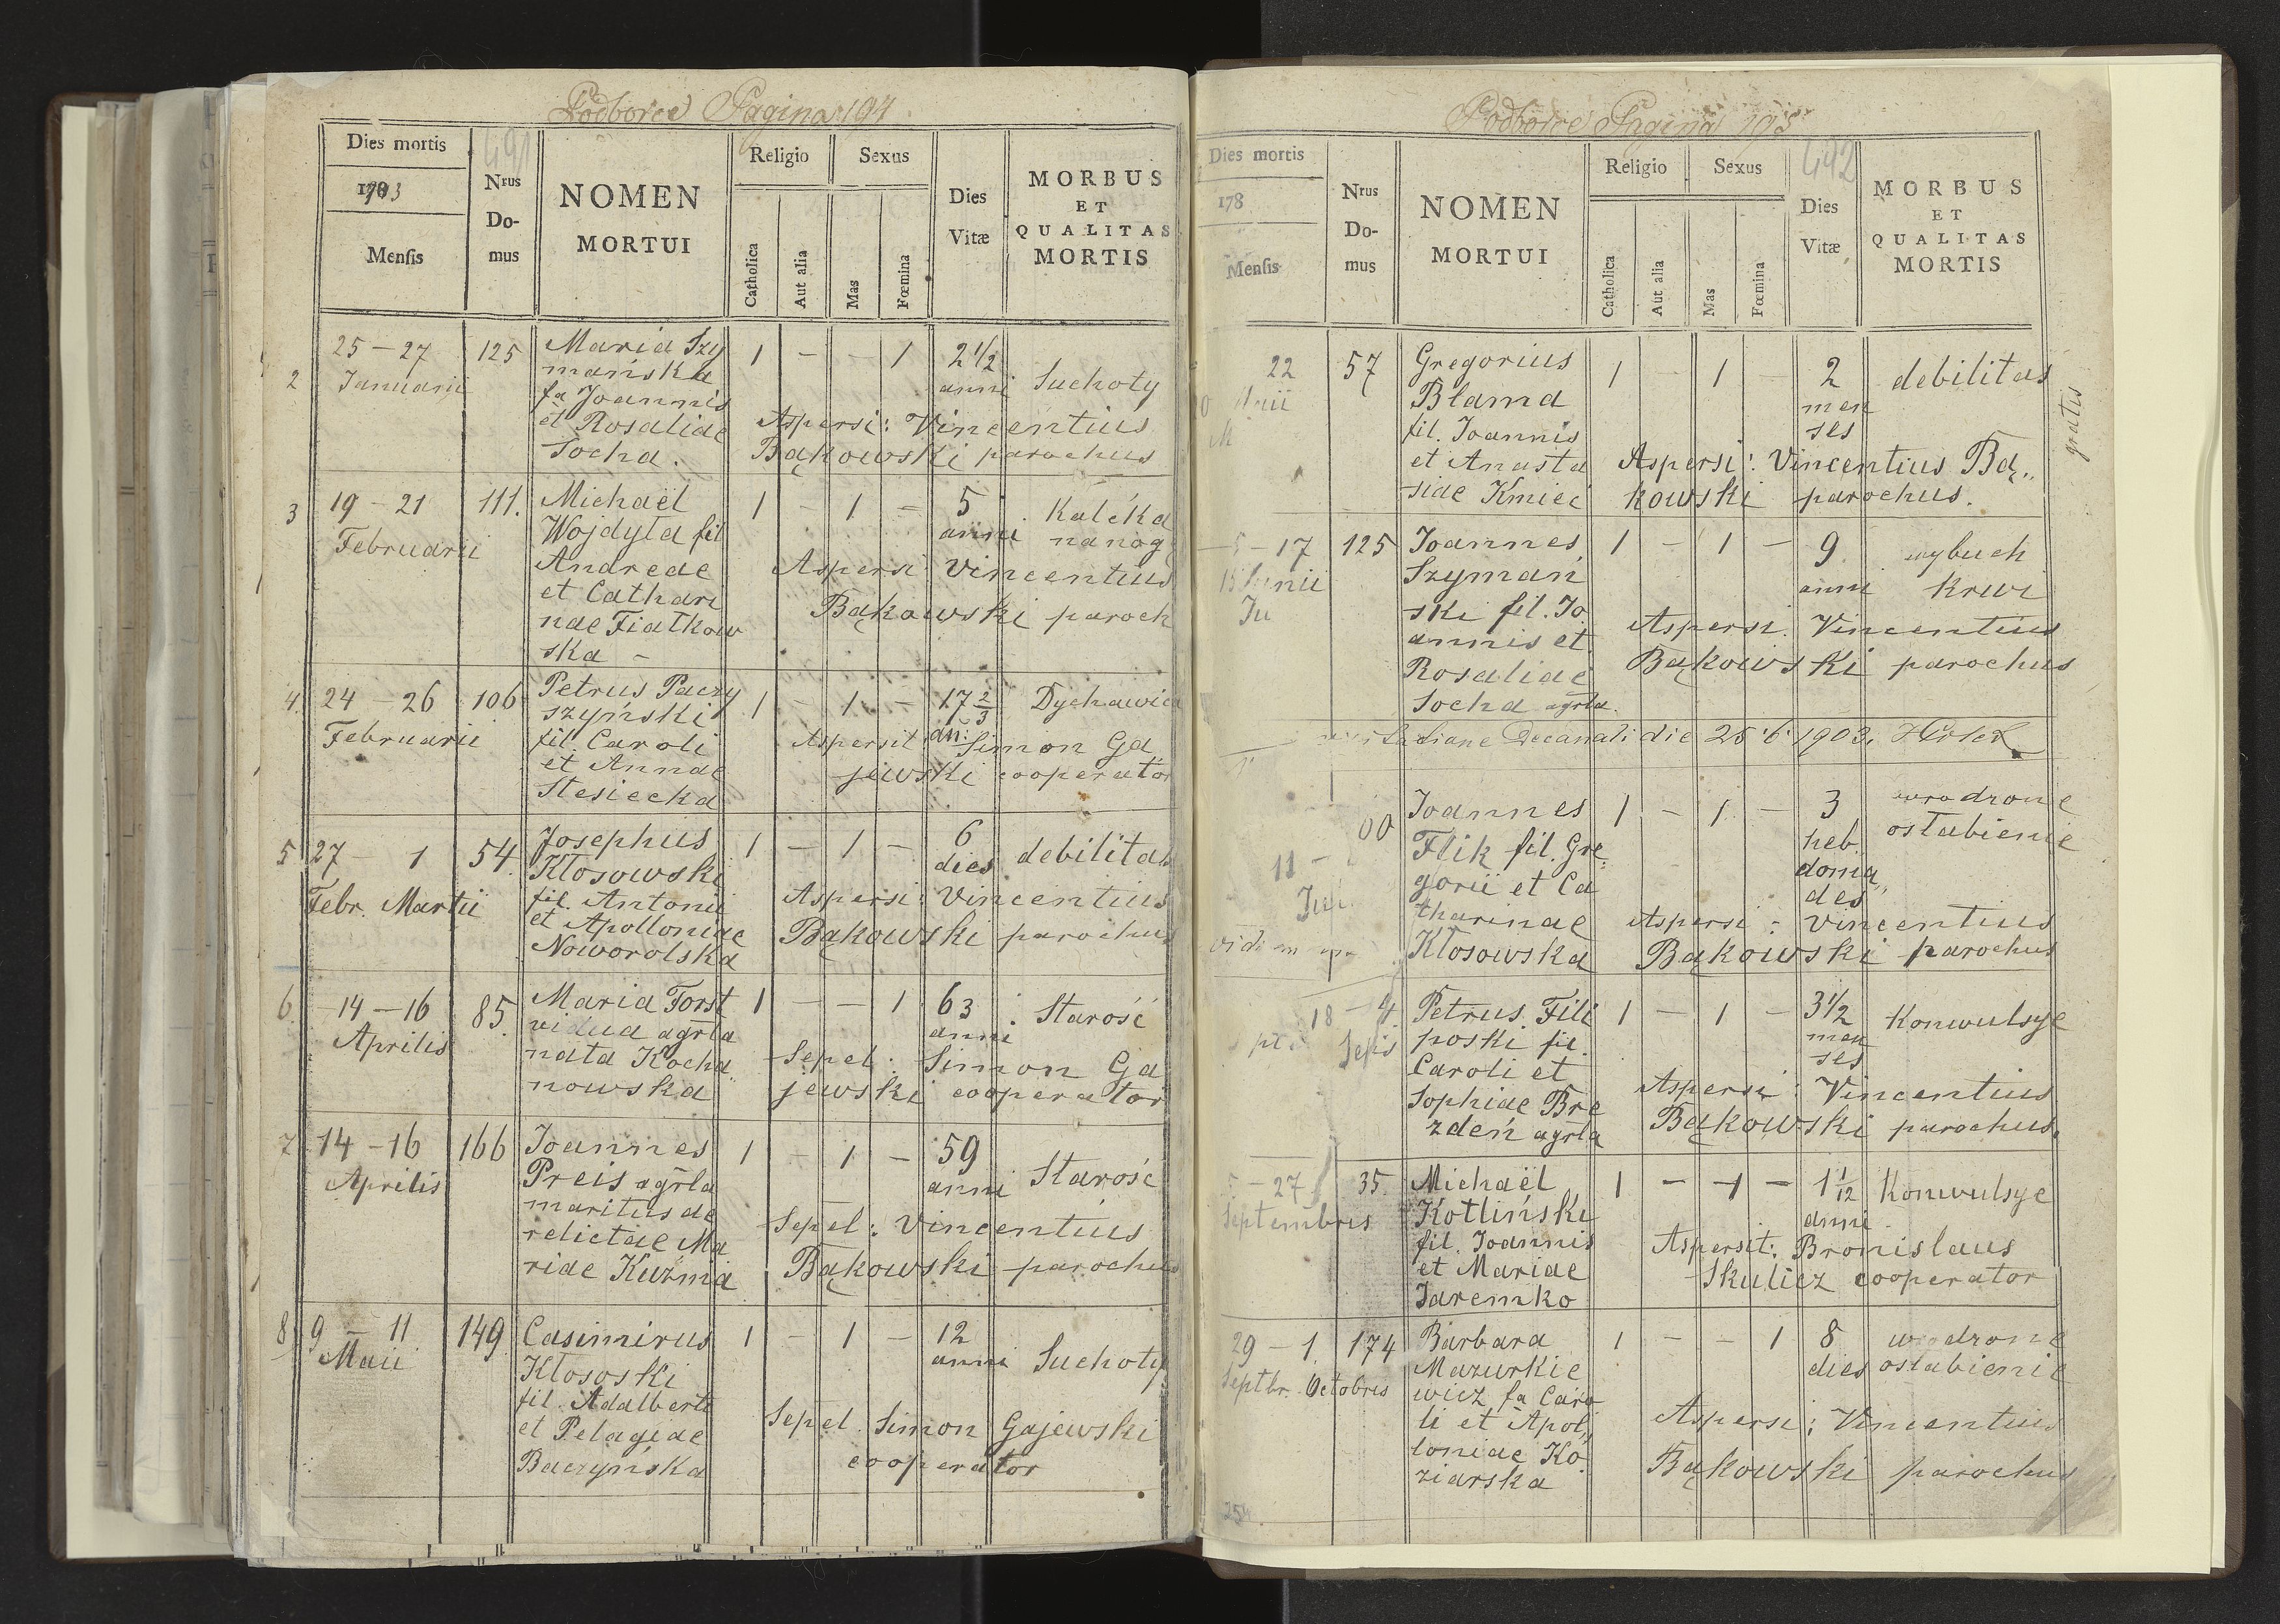 Podborce Pagina 194
491
Dies mortis
1903
Mensis
Nrus
Do-
mus
NOMEN
MORTUI
Religio
Catholica
Aut alia
Sexus
Mas
Fœmina
Dies
Vitæ
MORBUS
ET
QUALITAS
MORTIS
2 25 – 27 125 Maria Szy 1 – – 1 2½
Januarii mańska anni Suchoty
fa Joannis
et Rosaliae Aspersi: Vincentius
Socha. Bąkowski parochus
3 19 – 21 111. Michaël 1 – 1 – 5 Kaleka
Februarii Wojdyła fil anni na nog
Andreae Aspersi Vincentius
et Cathari
nae Fiałkow Bąkowski paroch
ska –
4. 24 – 26 106 Petrus Paczy 1 – 1 – 17 2/3 Dychawica
Februarii szyński an:
fil. Caroli Aspersit Simon Ga
et Annae jewski cooperator
Stesiecka
5 27 – 1 54. Josephus 1 – 1 – 6 debilitas
Febr. Martii Kłosowski dies
fil. Antonii Aspersi: Vincentius
et Apolloniae Bąkowski parochus
Noworolska
6 14 – 16 85. Maria Forst 1 – – 1 63 Starość
Aprilis vidua agrla anni
nata Kocha Sepel: Simon Ga
nowska jewski cooperator
7 14 – 16 166 Joannes 1 – 1 – 59 Starość
Aprilis Preis agrla anni
maritus de
relictae Ma Sepel: Vincentius
riae Kuźmia Bąkowski parochus
8 9 – 11 149 Casimirus 1 – 1 – 12 Suchoty
Maii Kłososki anni
fil. Adalberti
et Pelagiae Sepel. Simon Gajewski
Baczyńska cooperator
Podborce Pagina 195
492
Dies mortis
178
Mensis
Nrus
Do-
mus
NOMEN
MORTUI
Religio
Catholica
Aut alia
Sexus
Mas
Fœmina
Dies
Vitæ
MORBUS
ET
QUALITAS
MORTIS
22 57 Gregorius 1 – 1 – 2 debilitas
Blama men
fil. Joannis ses
et Anasta Aspersi: Vincentius Bą„
siae Kmieć kowski parochus.
gratis
17 125 Joannes 1 – 1 – 9 wybuch
Szymań anni krwi
ski fil. Jo
annis et Aspersi: Vincentius
Rosaliae Bąkowski parochus
Socha agrla.
Decanali die 25 6 1903.
Joannes 1 – 1 – 3 wrodzone
Flik fil. Gre heb. osłabienie
11 – gorii et Ca doma„
des
tharinae Aspersi: Vincentius
Kłosowska Bąkowski parochus
18 – Petrus Fili 1 – 1 – 3½ Konwulsye
poski fil. men
Caroli et ses
Sophiae Bre Aspersi: Vincentius
zdeń agrla Bąkowski parochus.
27 35. Michaël 1 – 1 – 1 1/12 Konwulsye
Septembris Kotliński anni
fil. Joannis Aspersit: Bronislaus
et Mariae Skulicz cooperator
Jaremko
29 – 1. 174 Barbara 1 – – 1 8 wrodzone
Septbr. Octobris Mazurkie dies osłabienie
wicz fa Caro
li et Apol„ Aspersi: Vincentius
loniae Ko
ziarska Bąkowski parochus
254